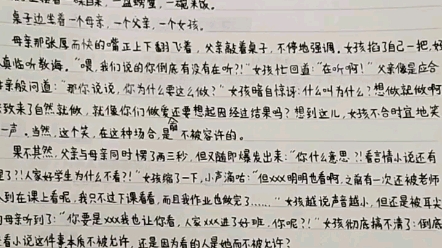 一盘螃蟹,一碗米饭。
桌子边坐着一个母亲,一个父亲,一个女孩。
母亲那张厚而快的嘴正上下翻飞着,父亲敲着桌子,不停地强调,女孩掐了自己一把,好
真临听教诲。“喂,我们说的你倒底有没有在听?!”女孩忙回道:“在听啊!”父亲像是应合
母亲般问道:“那你说说,你为什么要这么做?”女孩暗自惊讶:什么叫为什么?想做就做啊
致来了自然就做,就像你们做爱还要想起因经过结果吗?想到这儿,女孩不合时宜地笑
一声。当然,这个笑,在这种场合,是不被容许的。
果不其然,父亲与母亲同时愣了两三秒,但又随即爆发出来:“你什么意思?!看言情小说还有
理了?!人家好学生为什么不看?!”女孩缩了一下,小声滴咕:“但xxx明明也看啊,之前有一次还被老师
人到在课上看呢,我只不过下课看看,而且我作业也做完了……”女孩越说声音越小,但还是被耳尖
母亲听到了:“你要是xxx我也让你看,人家xxx进了好班,你呢?!”女孩彻底搞不清了:倒底
看小说这件事本质不被允许,还是因为看的人是她而不被允许?